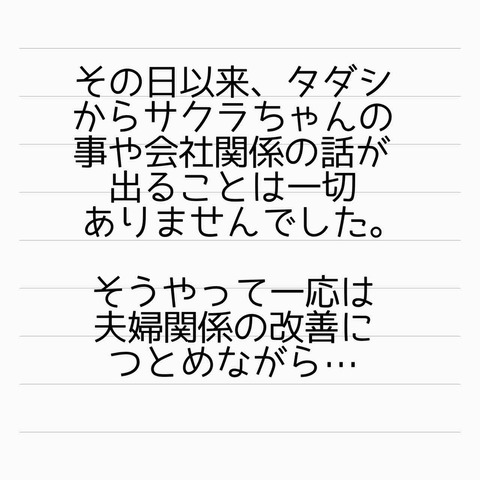 その日以来、タダシ
からサクラちゃんの
事や会社関係の話が
出ることは一切
ありませんでした。
そうやって一応は
夫婦関係の改善に
つとめながら…